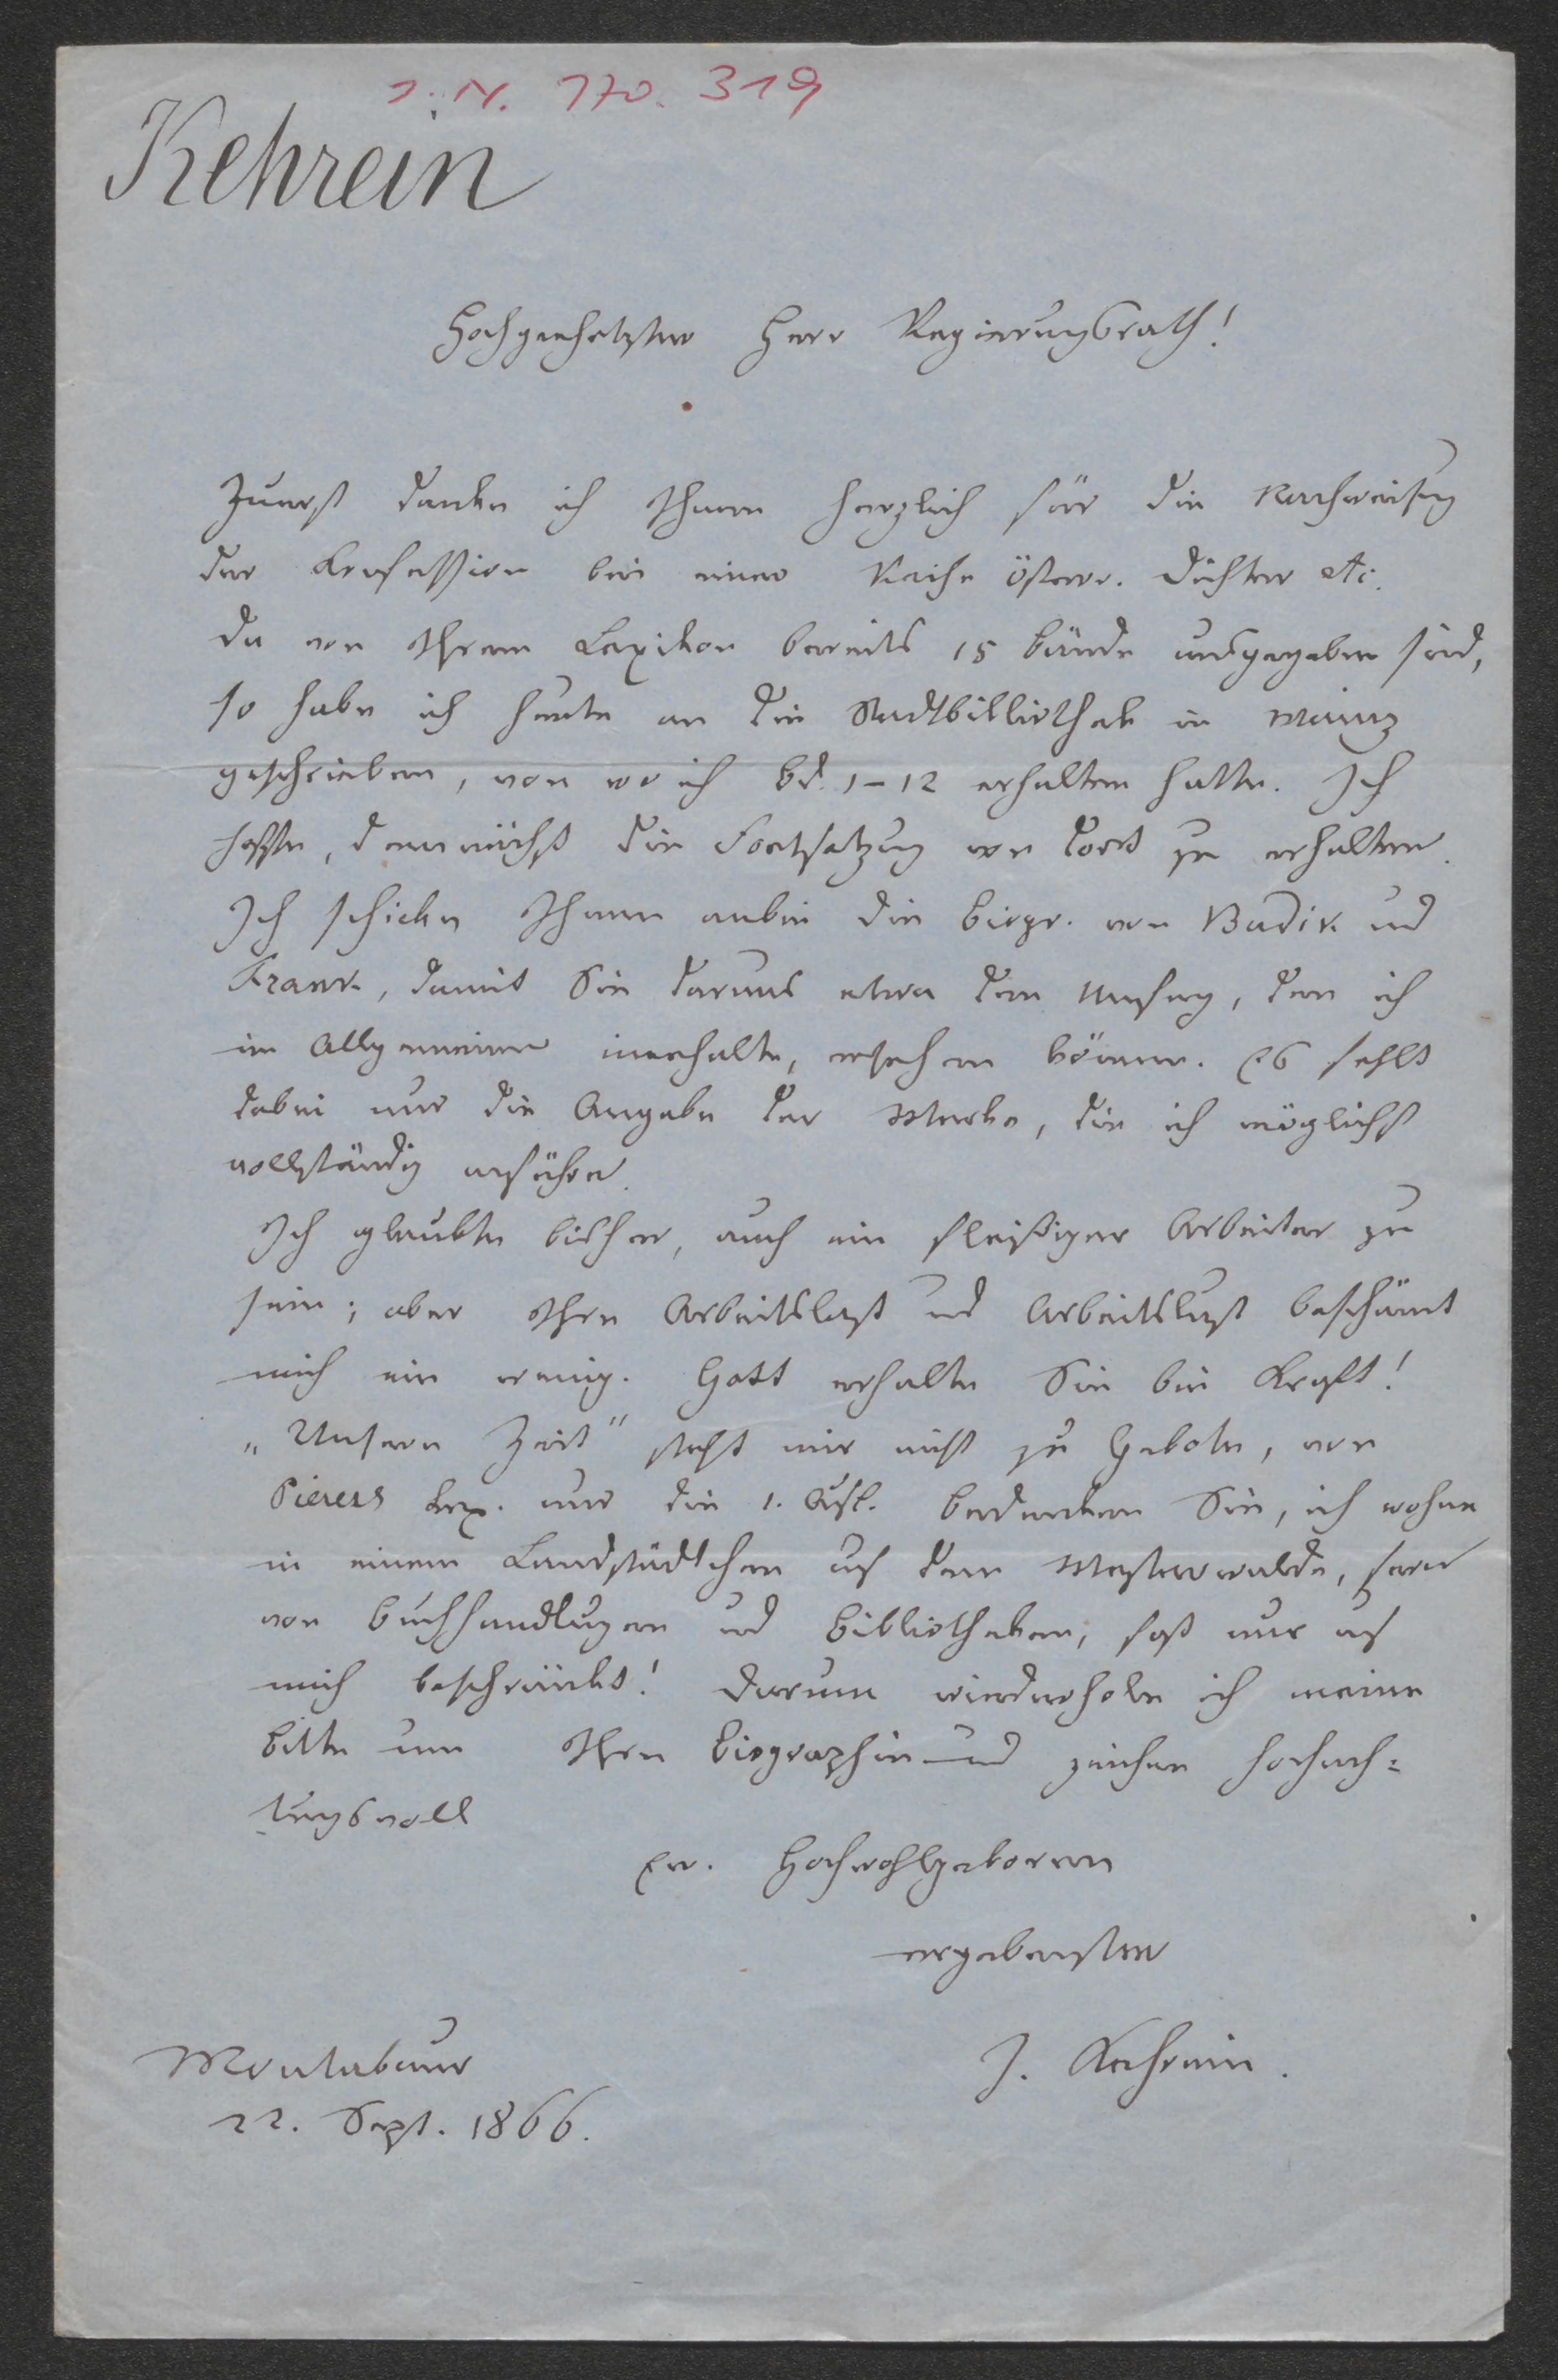 I. N. 170. 319
Kehrein
Hochgeehrtester Herr Regierungsrath!
Zuerst danke ich Ihnen herzlich für die Nachweisung
der Konfession bei einer Reihe österr. Dichter etc.
Da von Ihrem Lexikon bereits 15 Bände ausgegeben sind,
so habe ich heute an die Stadtbibliothek in Mainz
geschrieben, von wo ich Bd. 1–12 erhalten hatte. Ich
hoffe, demnächst die Fortsetzung von dort zu erhalten.
Ich schicke Ihnen anbei die Biogr. von Budik und
Frank, damit Sie daraus etwa den Umfang, den ich
im Allgemeinen innehalte, ersehen können. Es fehlt
dabei nur die Angabe der Werke, die ich möglichst
vollständig anführe.
Ich glaubte bisher, auch ein fleißiger Arbeiter zu
sein; aber Ihre Arbeitslast und Arbeitslust beschämt
mich ein wenig. Gott erhalte Sie bei Kraft!
„Unsere Zeit" steht mir nicht zu Gebote, von
Pierers Lex. nur die 1. Aufl. Bedenken Sie, ich wohne
in einem Landstädtchen auf dem Westerwalde, fern
von Buchhandlungen und Bibliotheken, fast nur auf
mich beschränkt! Darum wiederhole ich meine
Bitte um Ihre Biographie und zeichne hochach-
tungsvoll
Ew. Hochwohlgeboren
ergebenster
J. Kehrein.
Montabaur
22. Sept. 1866.